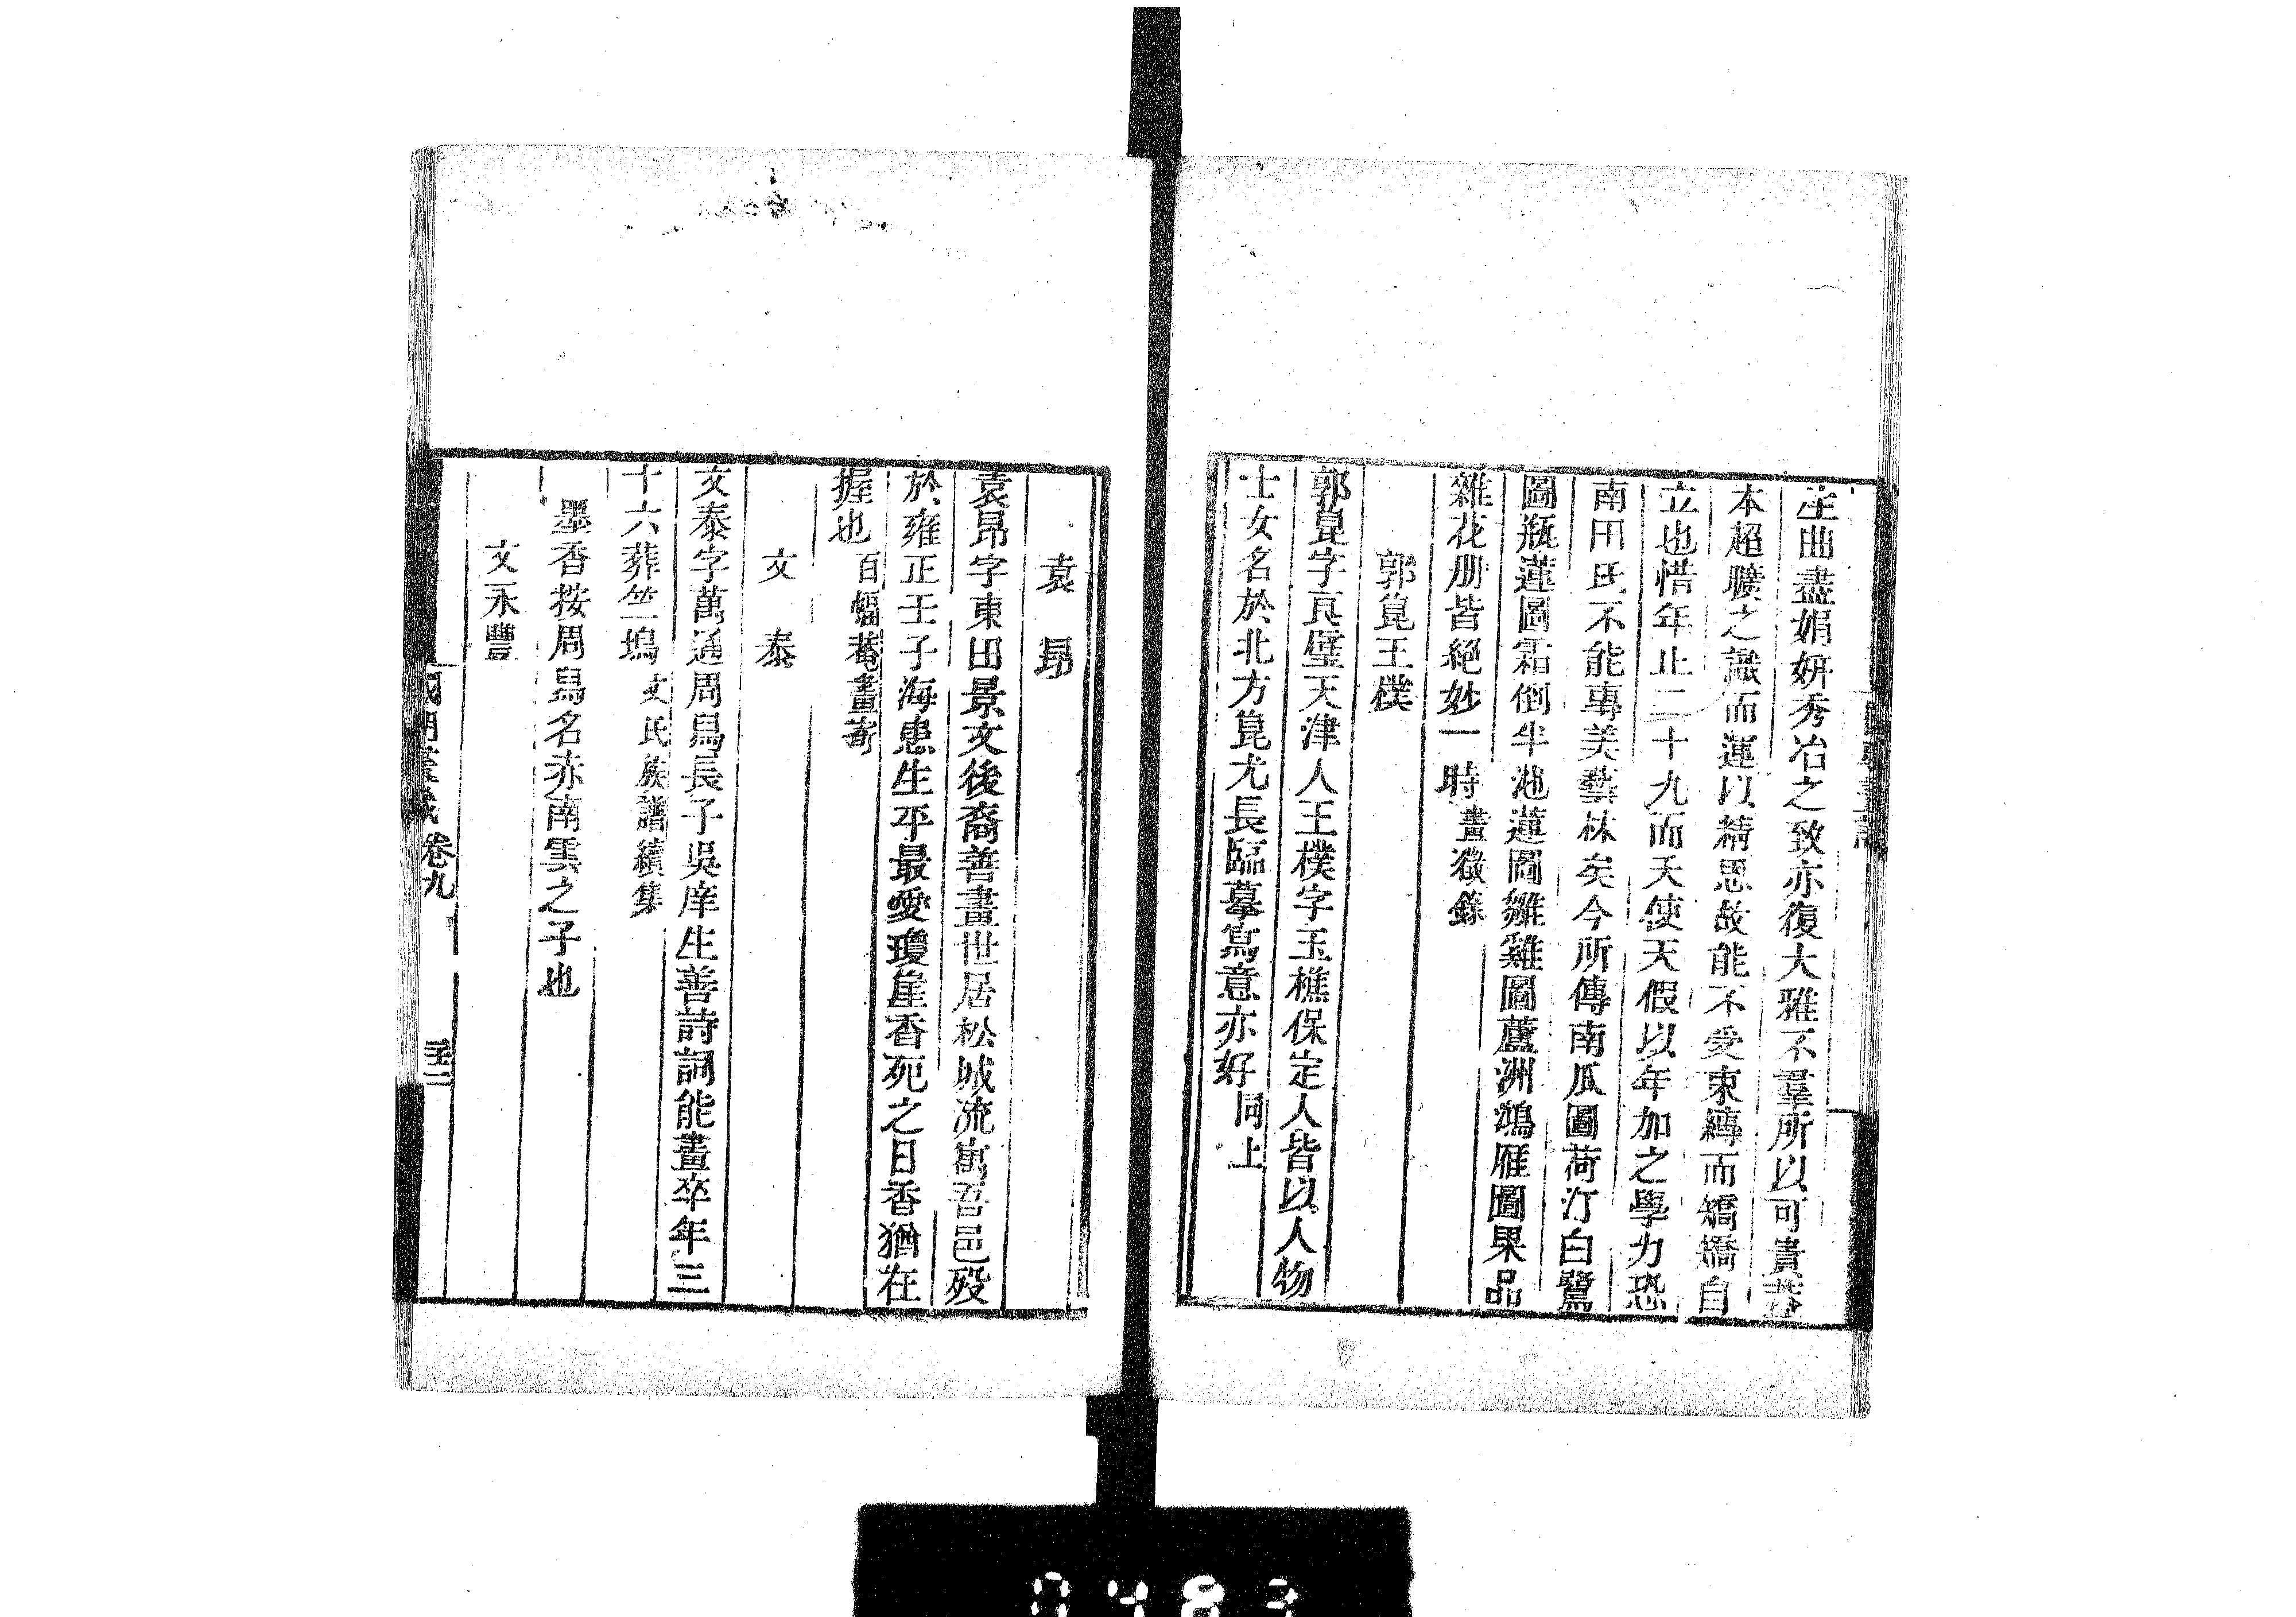 國朝畫識
生曲盡娟妍秀冶之致亦復大雅不羣所以可貴蓋
本超曠之識而運以精思故能不受束縛而矯矯自
立也惜年止二十九而夭使天假以年加之學力恐
南田氏不能專美藝林矣今所傳南瓜圖荷汀白鷺
圖瓶蓮圖霜倒半池蓮圖雛雞圖蘆洲鴻雁圖果品
雜花册皆絕妙一時畫徵錄
郭篔王樸
郭篔字良璧天津人王樸字玉樵保定人皆以人物
士女名於北方篔尤長臨摹寫意亦好同上
袁昻
袁昻字東田景文後裔善畫世居松城流寓吾邑歿
於雍正壬子海患生平最愛瓊崖香死之日香猶在
握也百幅菴畫寄
文泰
文泰字萬通周舄長子吳庠生善詩詞能畫卒年三
十六葬竺塢文氏族譜續集
墨香按周舄名赤南雲之子也
文永豐
國朝畫識卷九
至二
0483